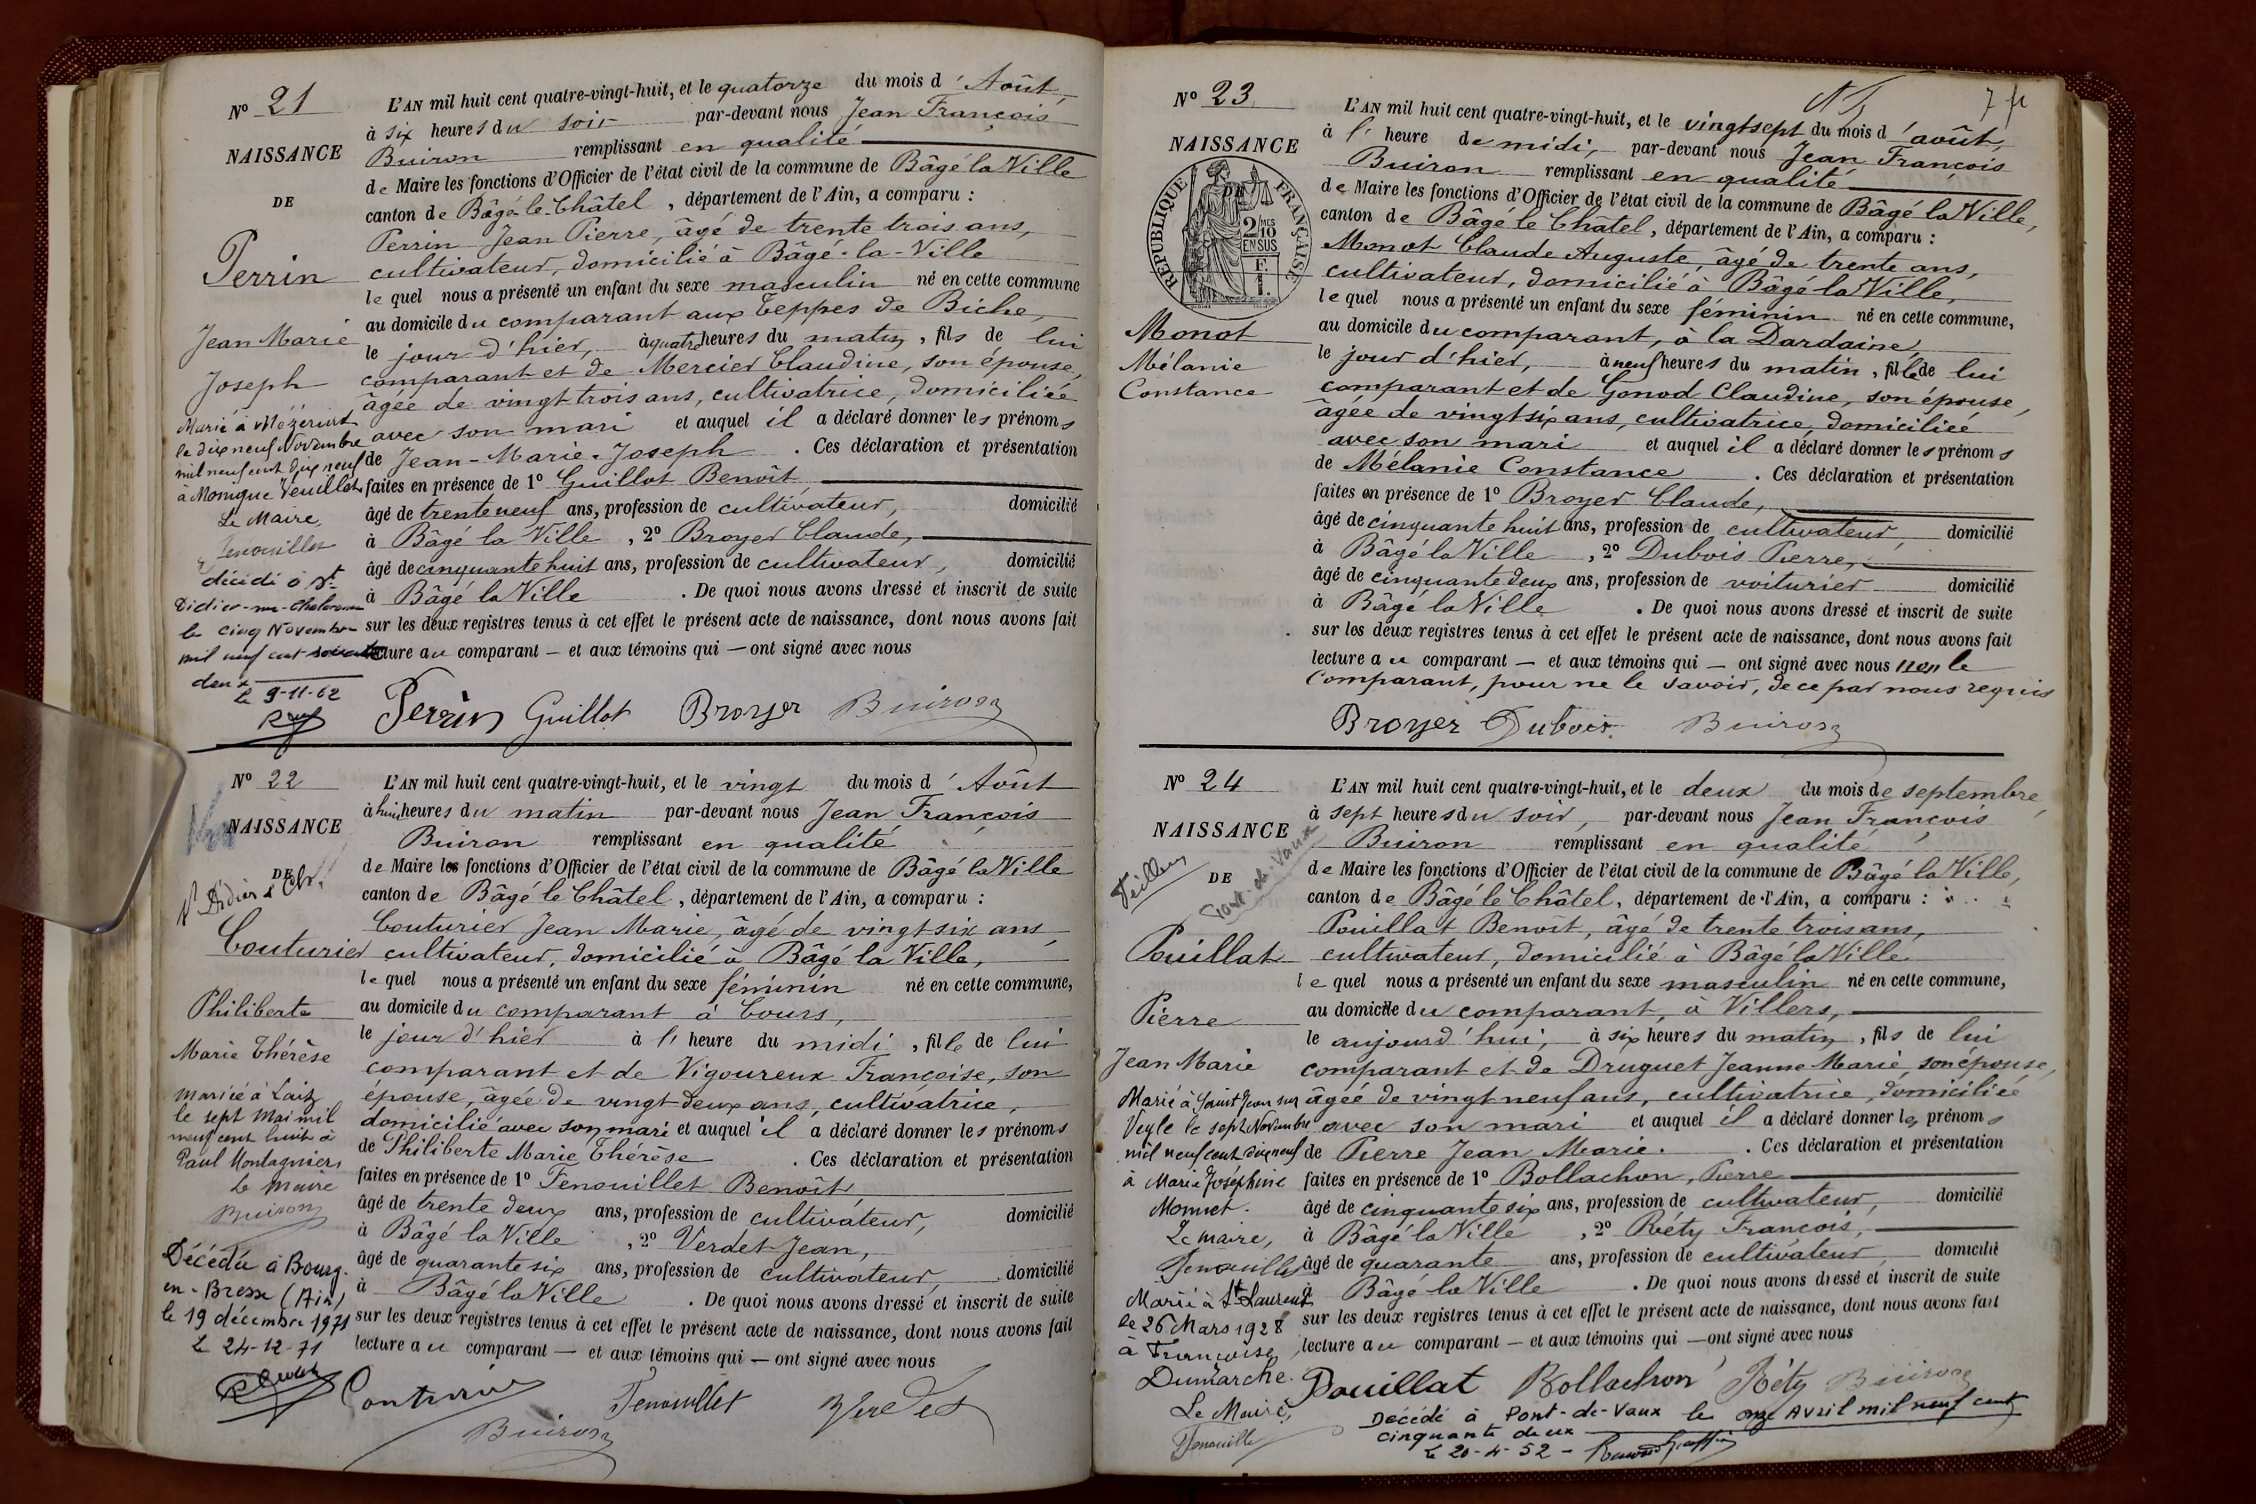 No 21
NAISSANCE
DE
Perrin
Jean Marie
Joseph
Marié à Mézériat
le dix neuf Novembre
mil neuf cent dix neuf
à Monique Veuillet
Le Maire,
décédé à St
Didier-sur-Chalaronne
le cinq Novembre
mil neuf cent soixante
deux
le 9-11-62
L'AN mil huit cent quatre-vingt-huit, et le quatorze du mois d'Août,
à six heures du soir par-devant nous Jean François
Buiron remplissant en qualité
de Maire les fonctions d'Officier de l'état civil de la commune de Bâgé la Ville
canton de Bâgé-le-Châtel, département de l'Ain, a comparu :
Perrin Jean Pierre, âgé de trente trois ans,
cultivateur, domicilié à Bâgé-la-Ville
lequel nous a présenté un enfant du sexe masculin né en cette commune
au domicile du comparant aux Teppes de Biche,
le jour d'hier, à quatre heures du matin, fils de lui
comparant et de Mercier Claudine, son épouse,
âgée de vingt trois ans, cultivatrice, domiciliée
avec son mari et auquel il a déclaré donner les prénoms
de Jean-Marie-Joseph . Ces déclaration et présentation
faites en présence de 1º Guillot Benoît,
âgé de trente neuf ans, profession de cultivateur, domicilié
à Bâgé la Ville, 2º Broyer Claude,
âgé de cinquante huit ans, profession de cultivateur, domicilié
à Bâgé la Ville . De quoi nous avons dressé et inscrit de suite
sur les deux registres tenus à cet effet le présent acte de naissance, dont nous avons fait
lecture au comparant — et aux témoins qui — ont signé avec nous
Perrin Guillot Broyer Buiron
No 22
NAISSANCE
DE
St Didier s Ch.
Couturier
Philiberte
Marie Thérèse
Mariée à Laiz
le sept Mai mil
neuf cent huit à
Paul Montagnier
Le Maire
Buiron
Décédée à Bourg-
en-Bresse (Ain)
le 19 décembre 1971
le 24-12-71
L'AN mil huit cent quatre-vingt-huit, et le vingt du mois d'Août
à huit heures du matin par-devant nous Jean François
Buiron remplissant en qualité
de Maire les fonctions d'Officier de l'état civil de la commune de Bâgé la Ville
canton de Bâgé le Châtel, département de l'Ain, a comparu :
Couturier Jean Marie, âgé de vingt six ans,
cultivateur, domicilié à Bâgé la Ville,
lequel nous a présenté un enfant du sexe féminin né en cette commune,
au domicile du comparant à Cours,
le jour d'hier à l' heure du midi, fille de lui
comparant et de Vigoureux Françoise, son
épouse, âgée de vingt deux ans, cultivatrice,
domicilié avec son mari et auquel il a déclaré donner les prénoms
de Philiberte Marie Thérèse . Ces déclaration et présentation
faites en présence de 1º Fenouillet Benoît,
âgé de trente deux ans, profession de cultivateur, domicilié
à Bâgé la Ville, 2º Verdet Jean,
âgé de quarante six ans, profession de cultivateur, domicilié
à Bâgé la Ville . De quoi nous avons dressé et inscrit de suite
sur les deux registres tenus à cet effet le présent acte de naissance, dont nous avons fait
lecture au comparant — et aux témoins qui — ont signé avec nous
Couturier Fenouillet Verdet
Buiron
No 23
NAISSANCE
RÉPUBLIQUE FRANÇAISE
2/10MES
EN SUS
Monot
Mélanie
Constance
L'AN mil huit cent quatre-vingt-huit, et le vingt sept du mois d'août,
à l' heure de midi, par-devant nous Jean François
Buiron remplissant en qualité
de Maire les fonctions d'Officier de l'état civil de la commune de Bâgé la Ville,
canton de Bâgé le Châtel, département de l'Ain, a comparu :
Monot Claude Auguste, âgé de trente ans,
cultivateur, domicilié à Bâgé la Ville,
lequel nous a présenté un enfant du sexe féminin né en cette commune,
au domicile du comparant, à la Dardaine,
le jour d'hier, à neuf heures du matin, fille de lui
comparant et de Gonod Claudine, son épouse,
âgée de vingt six ans, cultivatrice, domiciliée
avec son mari et auquel il a déclaré donner les prénoms
de Mélanie Constance . Ces déclaration et présentation
faites en présence de 1º Broyer Claude,
âgé de cinquante huit ans, profession de cultivateur, domicilié
à Bâgé la Ville, 2º Dubois Pierre,
âgé de cinquante deux ans, profession de voiturier domicilié
à Bâgé la Ville . De quoi nous avons dressé et inscrit de suite
sur les deux registres tenus à cet effet le présent acte de naissance, dont nous avons fait
lecture au comparant — et aux témoins qui — ont signé avec nous non le
comparant, pour ne le savoir, de ce par nous requis
Broyer Dubois Buiron
No 24
NAISSANCE
DE
Pont-de-Vaux
Pouillat
Pierre
Jean Marie
Marié à Saint Jean sur
Veyle le sept Novembre
mil neuf cent dix neuf
à Marie Joséphine
Monnet.
Le maire,
Marié à St Laurent
le 26 Mars 1928
à Françoise
Dumarche.
Le Maire,
L'AN mil huit cent quatre-vingt-huit, et le deux du mois de septembre,
à sept heures du soir, par-devant nous Jean François
Buiron remplissant en qualité
de Maire les fonctions d'Officier de l'état civil de la commune de Bâgé la Ville,
canton de Bâgé le Châtel, département de l'Ain, a comparu :
Pouillat Benoît, âgé de trente trois ans,
cultivateur, domicilié à Bâgé la Ville
lequel nous a présenté un enfant du sexe masculin né en cette commune,
au domicile du comparant, à Villers,
le aujourd'hui, à six heures du matin, fils de lui
comparant et de Druguet Jeanne Marie, son épouse,
âgée de vingt neuf ans, cultivatrice, domiciliée
avec son mari et auquel il a déclaré donner les prénoms
de Pierre Jean Marie. . Ces déclaration et présentation
faites en présence de 1º Bollachon, Pierre
âgé de cinquante six ans, profession de cultivateur, domicilié
à Bâgé la Ville, 2º Réty François,
âgé de quarante ans, profession de cultivateur domicilié
à Bâgé la Ville . De quoi nous avons dressé et inscrit de suite
sur les deux registres tenus à cet effet le présent acte de naissance, dont nous avons fait
lecture au comparant — et aux témoins qui — ont signé avec nous
Pouillat Bollachon Réty Buiron
Décédé à Pont-de-Vaux le onze Avril mil neuf cent
cinquante deux
le 20-4-52